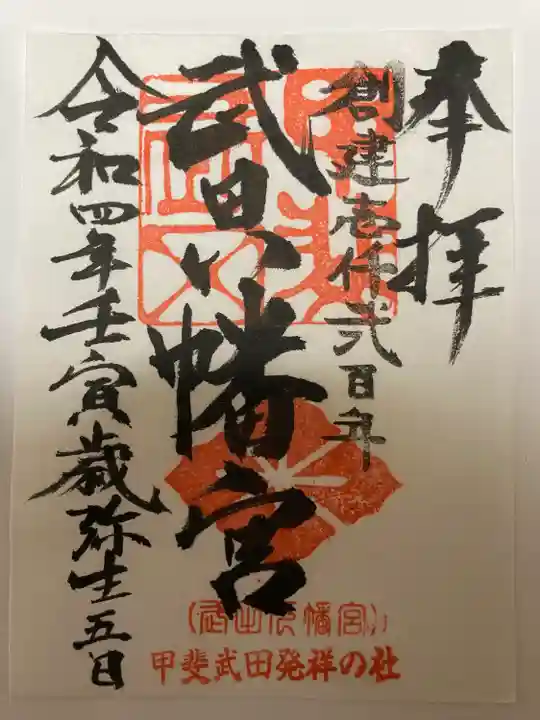 奉拝
創建壱仟弐百年
武田八幡宮
令和四年壬寅歳弥生五日
甲斐武田発祥の社